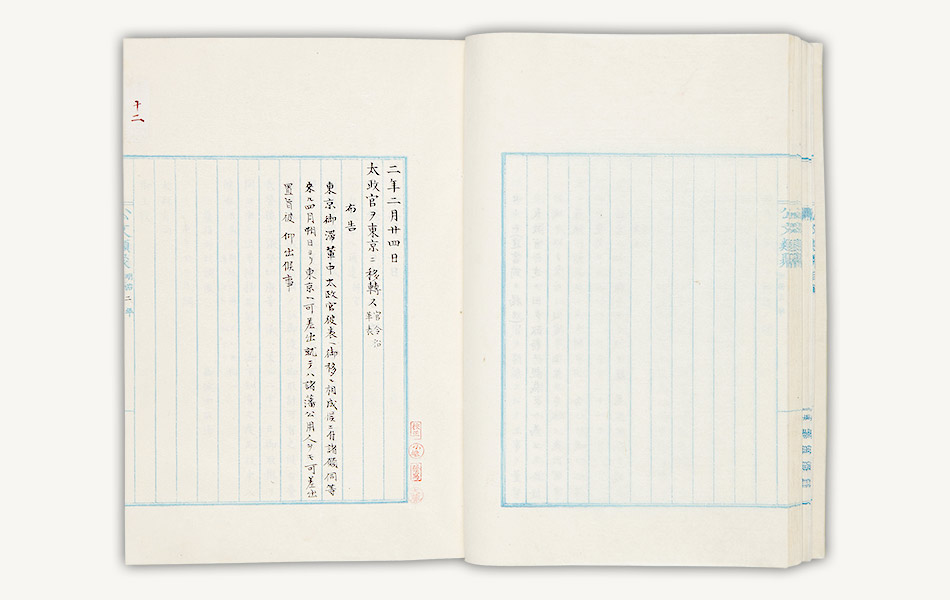 二年二月廿四日
太政官ヲ東京ニ移轉ス
布告
東京御滯輦中太政官彼表ヘ御移ニ相成候ニ付諸願伺等
來ル四月朔日ヨリ東京ヘ可差出就テハ諸藩公用人ヲモ可差出
置旨被 仰出候事
十二